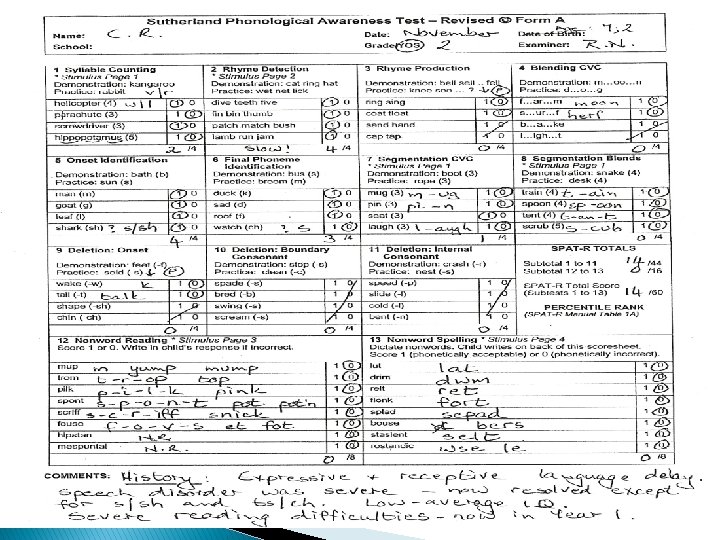 Sutherland Phonological Awareness Test – Revised © Form A
Name: C. R. Date: November Date of Birth: 7,2
School: Grade/YOS 2 Examiner: R.N.
1 Syllable Counting
* Stimulus Page 1
Demonstration: kangaroo
Practice: rabbit
helicopter (4) 1 0
parachute (3) 1 0
screwdriver (3) 1 0
hippopotamus (5) 1 0
2 /4
2 Rhyme Detection
* Stimulus Page 2
Demonstration: cat ring hat
Practice: wet net lick
dive teeth five 1 0
fin bin thumb 1 0
patch match bush 1 0
lamb run jam 1 0
Slow! 4 /4
3 Rhyme Production
Demonstration: bell sell .. fell
Practice: knee son ... ?
ring sing 1 0
coat float 1 0
sand hand 1 0
cap tap 1 0
0 /4
4 Blending CVC
Demonstration: m...oo...n
Practice: d...o...g
f...ar...m moon 1 0
s...ur...f herf 1 0
b...a...ke 1 0
l...igh...t 1 0
0 /4
5 Onset Identification
Demonstration: bath (b)
Practice: sun (s)
man (m) 1 0
goat (g) 1 0
leaf (l) 1 0
shark (sh) ? s/sh 1 0
4 /4
6 Final Phoneme
Identification
Demonstration: bus (s)
Practice: broom (m)
duck (k) 1 0
sad (d) 1 0
roof (f) 1 0
watch (ch) ? s 1 0
3 /4
7 Segmentation CVC
* Stimulus Page 1
Demonstration: boot (3)
Practice: rope (3)
mug (3) m-ug 1 0
pin (3) pi-n 1 0
seat (3) 1 0
laugh (3) l-augh 1 0
1 /4
8 Segmentation Blends
* Stimulus Page 1
Demonstration: snake (4)
Practice: desk (4)
train (4) t-ain 1 0
spoon (4) sp-oon 1 0
tent (4) t-an-t 1 0
scrub (5) s-cub 1 0
0 /4
9 Deletion: Onset
Demonstration: feat (-f)
Practice: sold (-s)
wake (-w) k 1 0
tall (-t) talk 1 0
shape (-sh) 1 0
chin (-ch) 1 0
0 /4
10 Deletion: Boundary
Consonant
Demonstration: stop (-s)
Practice: clean (-c)
spade (-s) 1 0
bred (-b) 1 0
swing (-s) 1 0
scream (-s) 1 0
0 /4
11 Deletion: Internal
Consonant
Demonstration: crash (-r)
Practice: nest (-s)
speed (-p) 1 0
slide (-l) 1 0
cold (-l) 1 0
bent (-n) 1 0
0 /4
SPAT-R TOTALS
Subtotal 1 to 11 14 /44
Subtotal 12 to 13 0 /16
SPAT-R Total Score
(Subtests 1 to 13) 14 /60
PERCENTILE RANK
(SPAT-R Manual Table 1A)
12 Nonword Reading * Stimulus Page 3
Score 1 or 0. Write in child's response if incorrect.
mup in yump mump 1 0
trom t-r-op top 1 0
pilk p-i-l-k pink 1 0
spont s-p-o-n-t pst 1 0
scriff s-c-r-iff snick 1 0
fouse f-o-v-s et fot 1 0
hipatan N.R. 1 0
mespuntal N.R. 1 0
0 /8
13 Nonword Spelling * Stimulus Page 4
Dictate nonwords. Child writes on back of this scoresheet.
Score 1 (phonetically acceptable) or 0 (phonetically incorrect).
lut lat 1 0
drim dwm 1 0
relt ret 1 0
flonk fort 1 0
splad sepad 1 0
bouse bers 1 0
staslent selt 1 0
rostandic wse le 1 0
0 /8
COMMENTS: History: Expressive + receptive language delay.
Speech disorder was severe – now resolved except
for s/sh and ts/ch. Low-average I.Q.
Severe reading difficulties – now in Year 1.